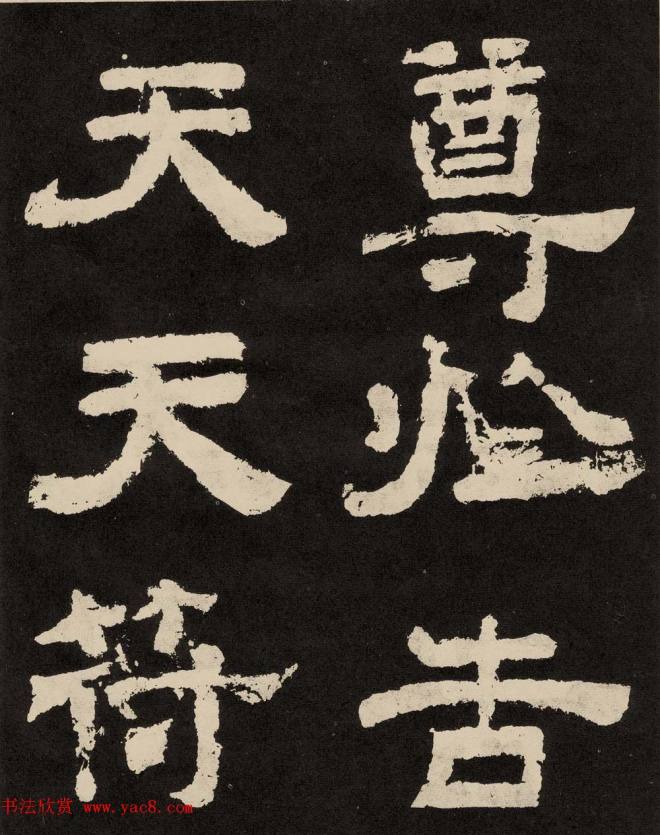 尊必告
天天符
书法欣赏 www.yac8.com